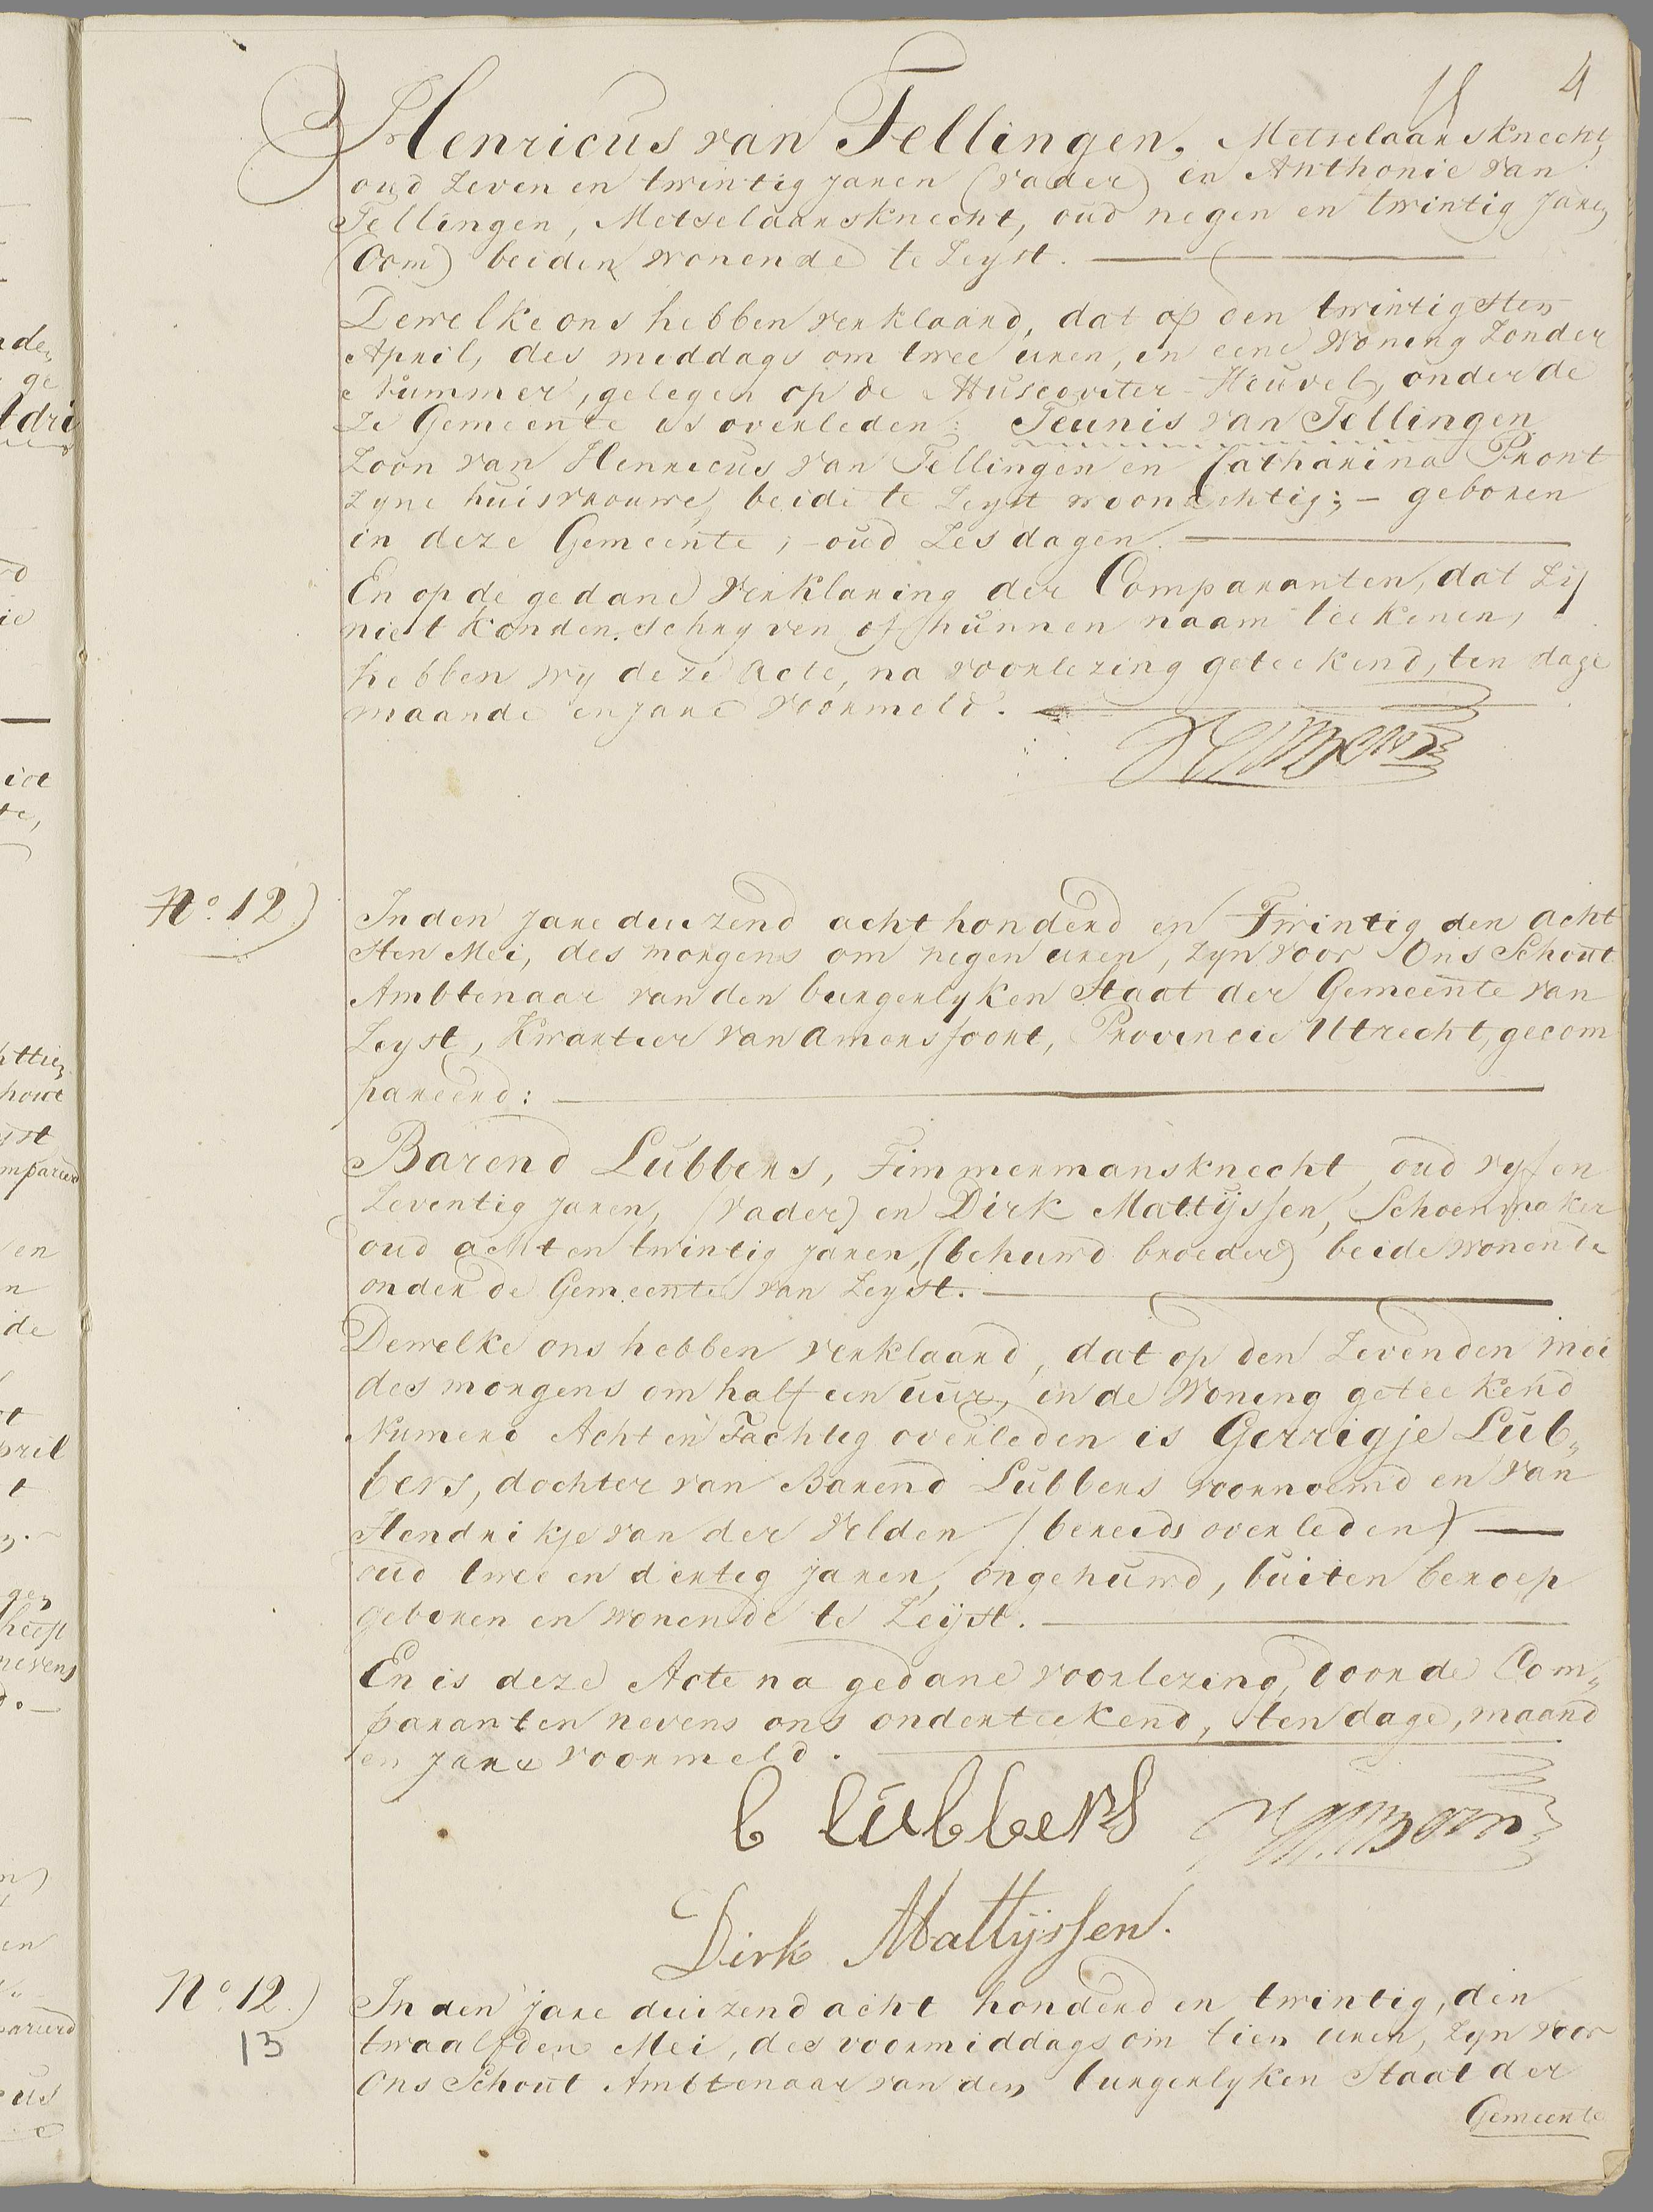 4
Henricus van Tellingen, Metselaarsknecht,
oud zeven en twintig jaren (vader) en Anthonie van
Tellingen, Metselaarsknecht, oud negen en twintig Jaren
(Oom) beiden wonende te Zeyst.
Dewelke ons hebben verklaard, dat op den twintigsten
April, des middags om twee uren, in eene Woning zonder
Nummer, gelegen op de Muscoviter-Heuvel, onder de
ze Gemeente is overleden: Teunis van Tellingen
Zoon van Henricus van Tellingen en Catharina Pront
zyne huisvrouwe, beide te Zeyst woonachtig; - geboren
in deze Gemeente; - oud Zes dagen.
En op de gedane Verklaring der Comparanten, dat zij
niet konden schryven of hunnen naam teekenen,
hebben wy deze acte, na voorlezing geteekend, ten dage
maande en jare voormeld.
No. 12)
In den jare duizend acht honderd en Twintig den acht
sten Mei, des morgens om negen uren, zyn voor Ons Schout
Ambtenaar van den burgerlyken Staat der Gemeente van
Zeyst, Kwartier van Amersfoort, Provincie Utrecht, gecom
pareerd:
Barend Lubbers, Timmermansknecht, oud vyf en
Zeventig jaren, (vader) en Dirk Mattijssen, Schoenmaker
oud acht en twintig jaren, (behuwd broeder) beide wonende
onder de Gemeente van Zeyst.
Dewelke ons hebben verklaard, dat op den Zevenden Mei
des morgens om half een uur, in de Woning geteekend
Numero Acht en Tachtig overleden is Gerrigje Lub„
bers, dochter van Barend Lubbers voornoemd en van
Hendrikje van der Velden (bereids overleden)
oud twee en dertig jaren, ongehuwd, buiten beroep
geboren en wonende te Zeijst.
En is deze Acte na gedane voorlezing, door de Com„
paranten nevens ons onderteekend, ten dage, maand
en jare voormeld.
b lubbers
Dirk Mattijssen.
No. 12.)
13
In den jare duizend acht honderd en twintig, den
twaalfden Mei, des voormiddags om tien uren, zyn voor
Ons Schout Ambtenaar van den burgerlyken Staat der
Gemeente